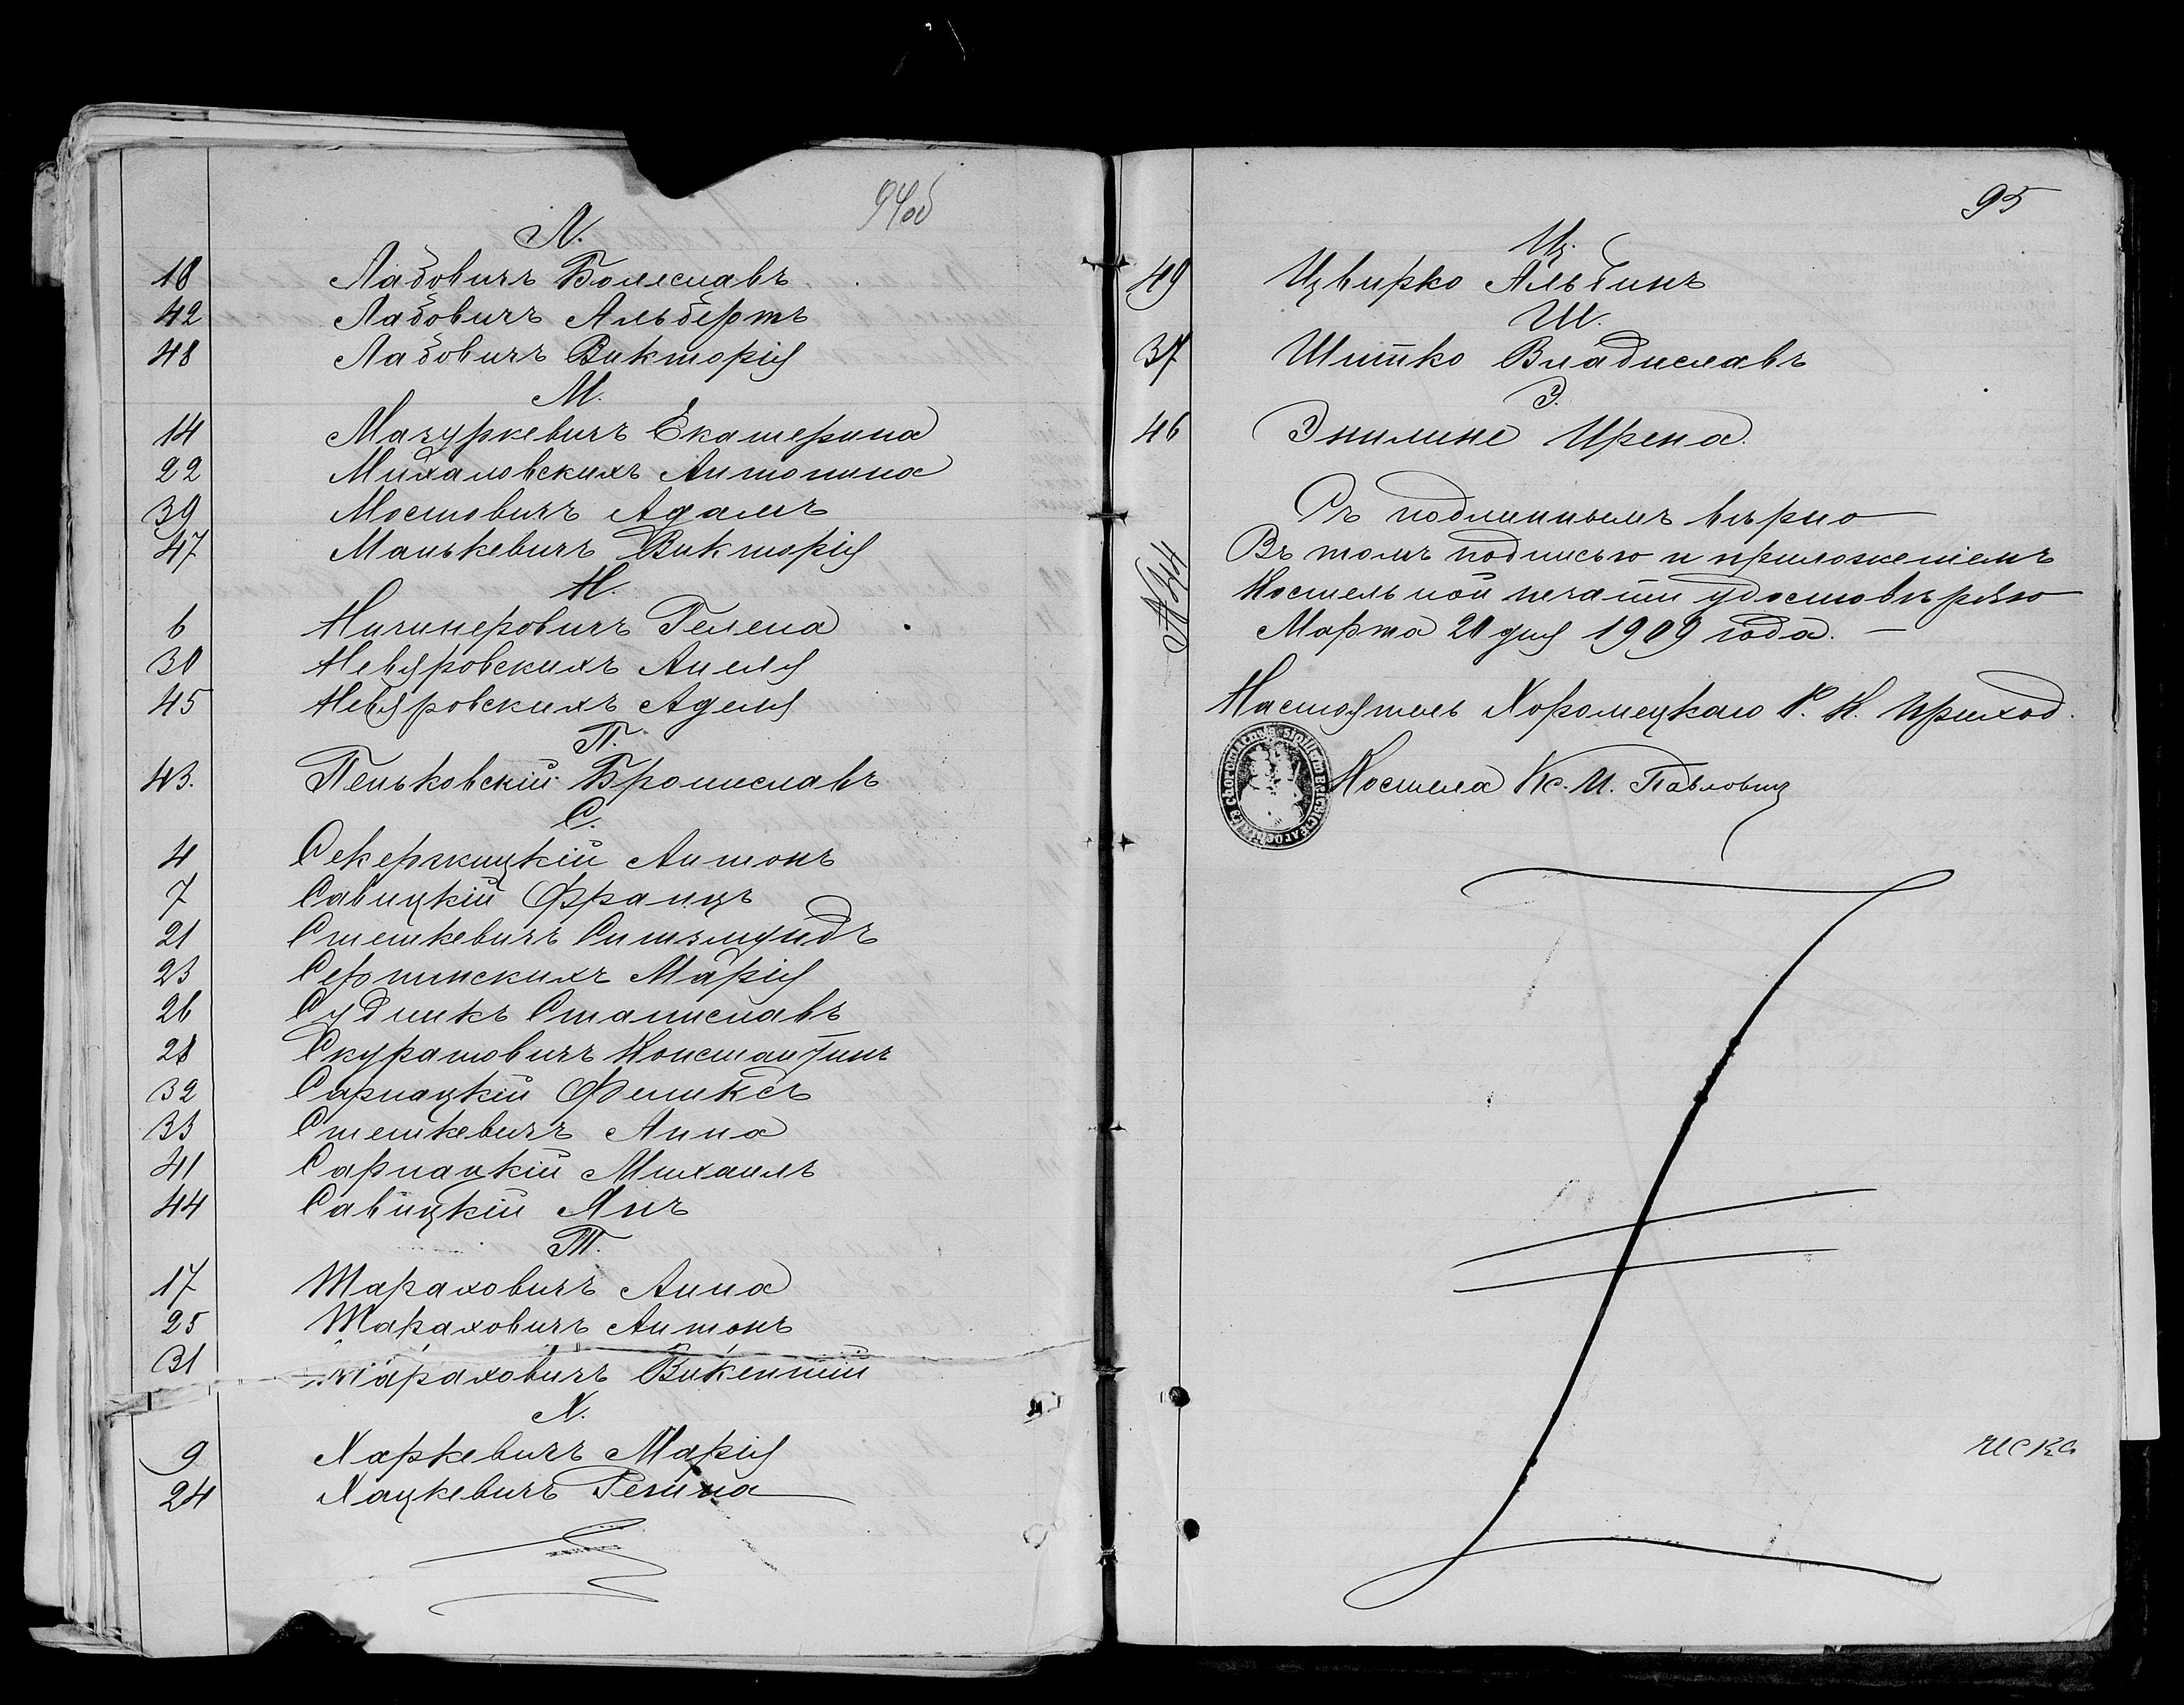 94об
Л.
18 Лабовичъ Болеславъ
42 Лабовичъ Альбертъ
48 Лабовичъ Викторія
М.
14 Мачуркевичъ Екатерина
22 Михаловскихъ Антонина
39 Мостовичъ Адамъ
47 Манькевичъ Викторія
Н.
6 Гелена
30 Невяровскихъ Анеля
45 Невяровскихъ Аделя
П.
43. Пеньковскій Брониславъ
С.
4 Антонъ
7 Савицкій Францъ
21 Стешкевичъ
23 Марія
26 Судникъ Станиславъ
28 Скуратовичъ Константинъ
32 Сарнацкій Феликсъ
33 Стешкевичъ Анна
41 Сарнацкій Михаилъ
44 Савицкій Янъ
Т.
17 Тараховичъ Анна
25 Тараховичъ Антонъ
31 Тараховичъ Викентій
Х.
9 Харкевичъ Марія
24 Хацкевичъ Регина
95
Ц.
49 Цвирко Альбинъ
Ш.
37 Шитко Владиславъ
Э.
46 Ирена.
Съ подлиннымъ вѣрно
Въ томъ подписью и приложеніемъ
Костельной печати удостовѣряю
Марта 20 дня 1909 года. —
№ 44
Настоятель Хоромецкаго Р. К. Приход.
Костела Кс. И. Павловичъ